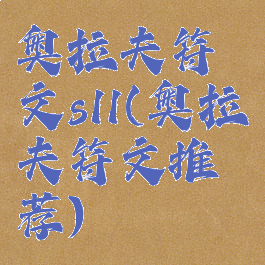 奥拉夫符
文sll(奥拉
夫符文推
荐)